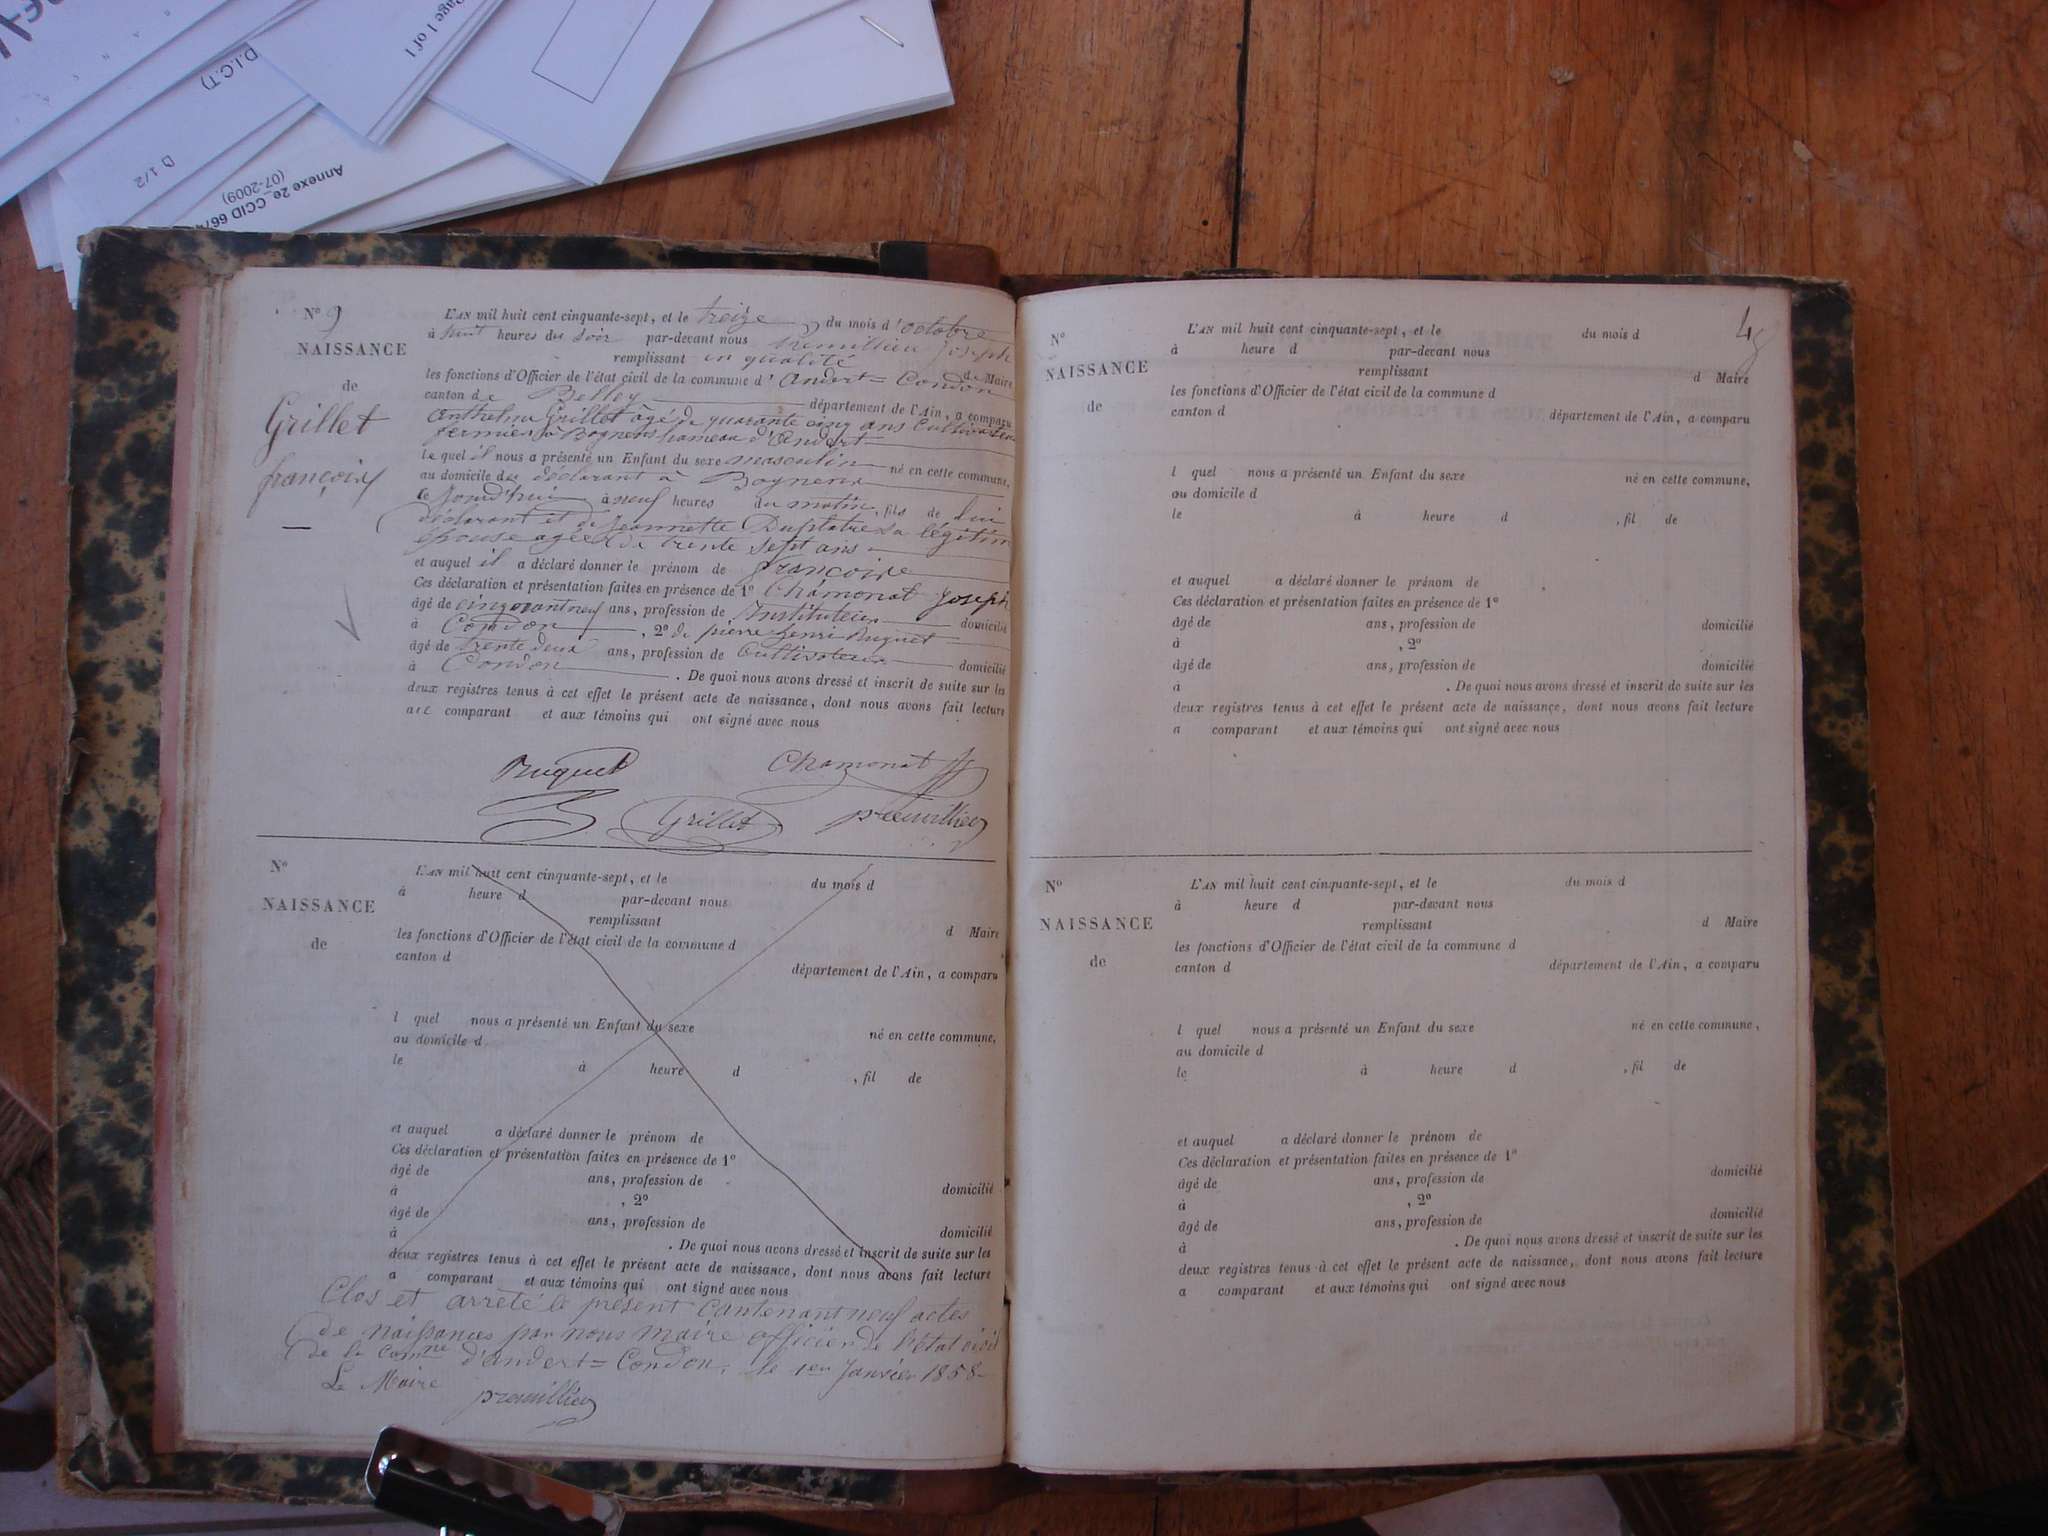 Page 1 of 1
D.I.C.T)
D 1/2
Annexe 2e_CCID 667
(07-2009)
N° 9
NAISSANCE
de
Grillet
françois
L'AN mil huit cent cinquante-sept, et le treize du mois d'octobre
à huit heures du soir par-devant nous premillieu Joseph
remplissant en qualité de Maire
les fonctions d'Officier de l'état civil de la commune d'andert=Condon
canton de Belley département de l'Ain, a comparu
anthelme Grillet âgé de quarante cinq ans Cultivateur
fermier à Bognens hameau d'andert
Le quel il nous a présenté un Enfant du sexe masculin né en cette commune,
au domicile du déclarant à Bognens
ce jourd'hui à neuf heures du matin, fils de lui
déclarant et de jeannette sa légitime
épouse agée de trente sept ans
et auquel il a déclaré donner le prénom de françois
Ces déclaration et présentation faites en présence de 1° Chamonat Joseph
âgé de cinquant neuf ans, profession de Instituteur domicilié
à Condon, 2° de pierre henri Ruguet
âgé de trente deux ans, profession de Cultivateur domicilié
à Condon. De quoi nous avons dressé et inscrit de suite sur les
deux registres tenus à cet effet le présent acte de naissance, dont nous avons fait lecture
au comparant et aux témoins qui ont signé avec nous
Ruguet Chamonat
Grillet premillieu
N°
NAISSANCE
de
L'AN mil huit cent cinquante-sept, et le du mois d
à heure d par-devant nous
remplissant d Maire
les fonctions d'Officier de l'état civil de la commune d
canton d département de l'Ain, a comparu
l quel nous a présenté un Enfant du sexe né en cette commune,
au domicile d
le à heure d , fil de
et auquel a déclaré donner le prénom de
Ces déclaration et présentation faites en présence de 1°
âgé de ans, profession de domicilié
à , 2°
âgé de ans, profession de domicilié
à . De quoi nous avons dressé et inscrit de suite sur les
deux registres tenus à cet effet le présent acte de naissance, dont nous avons fait lecture
a comparant et aux témoins qui ont signé avec nous
Clos et arreté le présent contenant neuf actes
de naissances par nous maire officier de l'état civil
de la comne d'andert=Condon, le 1er Janvier 1858
Le Maire
premillieu
48
N°
NAISSANCE
de
L'AN mil huit cent cinquante-sept, et le du mois d
à heure d par-devant nous
remplissant d Maire
les fonctions d'Officier de l'état civil de la commune d
canton d département de l'Ain, a comparu
l quel nous a présenté un Enfant du sexe né en cette commune,
au domicile d
le à heure d , fil de
et auquel a déclaré donner le prénom de
Ces déclaration et présentation faites en présence de 1°
âgé de ans, profession de domicilié
à , 2°
âgé de ans, profession de domicilié
à . De quoi nous avons dressé et inscrit de suite sur les
deux registres tenus à cet effet le présent acte de naissance, dont nous avons fait lecture
a comparant et aux témoins qui ont signé avec nous
N°
NAISSANCE
de
L'AN mil huit cent cinquante-sept, et le du mois d
à heure d par-devant nous
remplissant d Maire
les fonctions d'Officier de l'état civil de la commune d
canton d département de l'Ain, a comparu
l quel nous a présenté un Enfant du sexe né en cette commune,
au domicile d
le à heure d , fil de
et auquel a déclaré donner le prénom de
Ces déclaration et présentation faites en présence de 1°
âgé de ans, profession de domicilié
à , 2°
âgé de ans, profession de domicilié
à . De quoi nous avons dressé et inscrit de suite sur les
deux registres tenus à cet effet le présent acte de naissance, dont nous avons fait lecture
a comparant et aux témoins qui ont signé avec nous